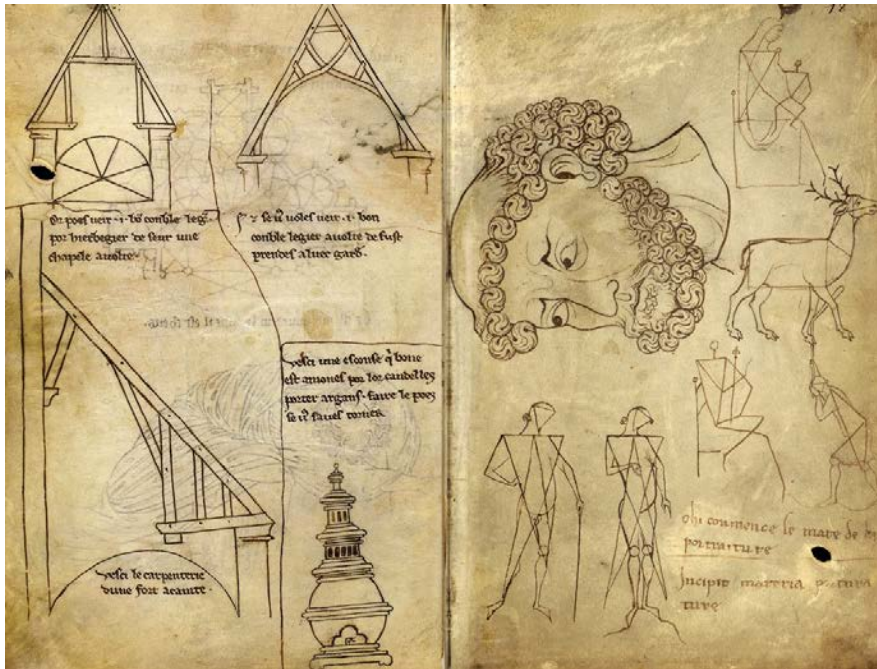 Or poes veir .i. bō conble legr
por hierbegier de seur une
chapele a uolte.
& se uꝰ uoles ueir .i. bon
conble legier a uolte de fust
prendes aluec gard.
vesci une esconse q̄ bone
est a moines por lor candelles
porter argans. faire le poes
se uꝰ saues torner.
vesci le carpenterie
dune fort acainte.
chi commence le mate de
portraiture
Incipit materia portura
ture